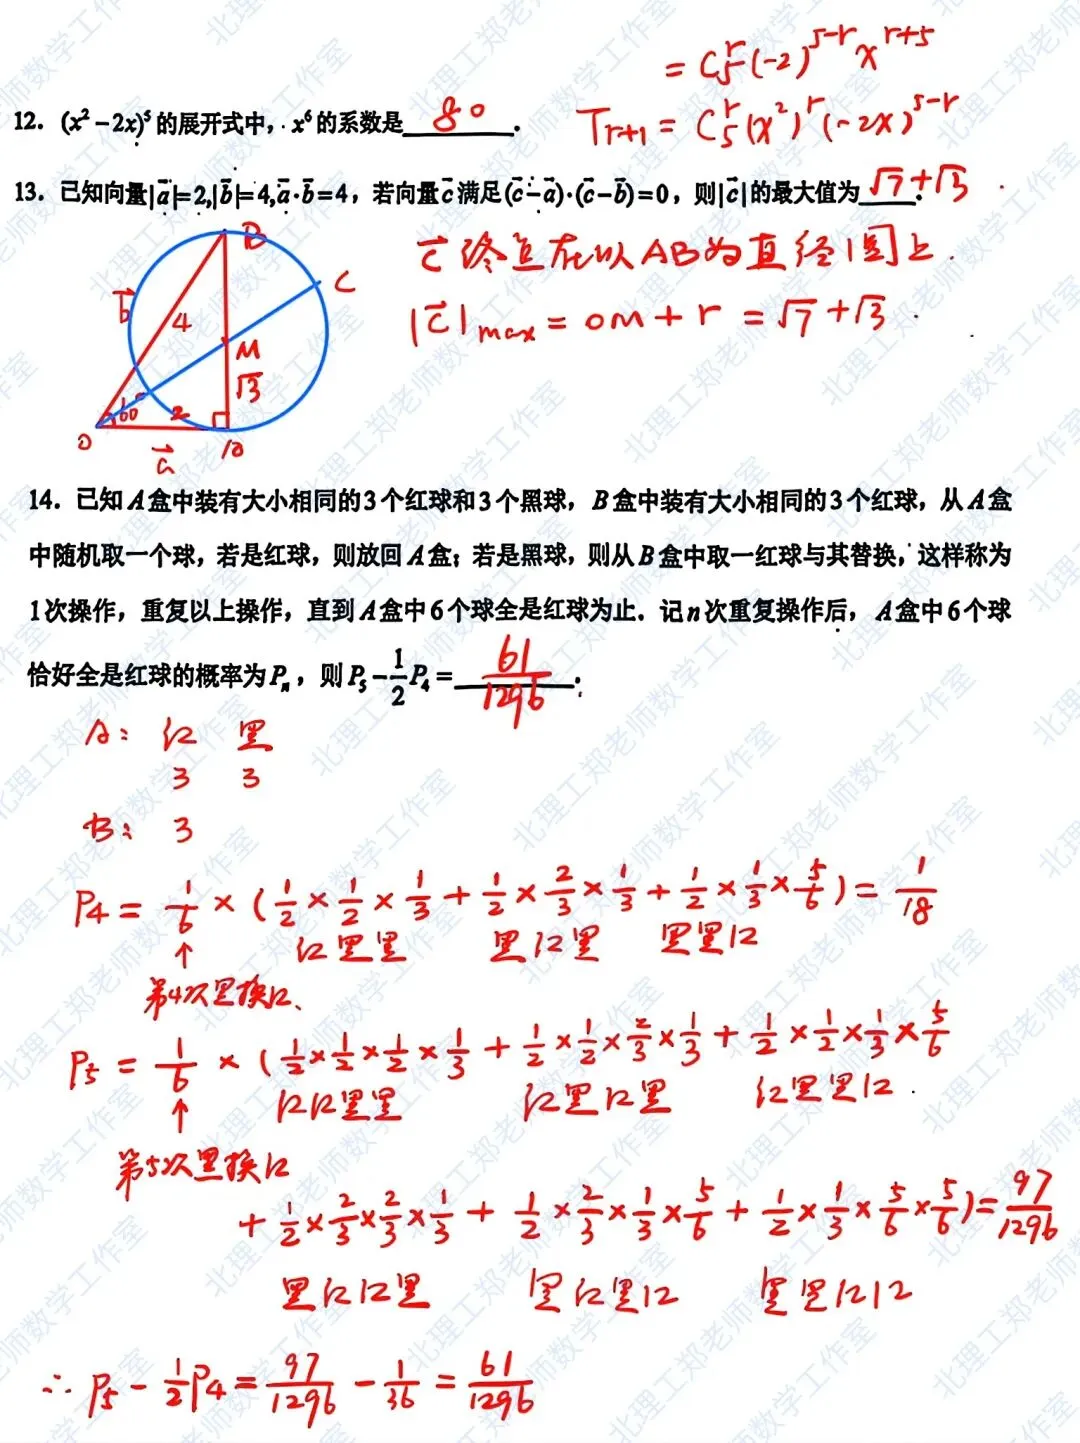 = C₅ʳ(-2)⁵⁻ʳ xʳ⁺⁵
12. (x²-2x)⁵的展开式中, x⁶的系数是 80 .
Tᵣ₊₁ = C₅ʳ(x²)ʳ(-2x)⁵⁻ʳ
13. 已知向量|a⃗|=2,|b⃗|=4,a⃗·b⃗=4, 若向量c⃗满足(c⃗-a⃗)·(c⃗-b⃗)=0, 则|c⃗|的最大值为 √7+√3 .
c⃗终点在以AB为直径圆上.
|c⃗|max = OM + r = √7+√3 .
B
C
b⃗
4
M
√3
60°
2
O
a⃗
A
14. 已知A盒中装有大小相同的3个红球和3个黑球, B盒中装有大小相同的3个红球, 从A盒
中随机取一个球, 若是红球, 则放回A盒; 若是黑球, 则从B盒中取一红球与其替换, 这样称为
1次操作, 重复以上操作, 直到A盒中6个球全是红球为止. 记n次重复操作后, A盒中6个球
恰好全是红球的概率为Pₙ, 则P₅-1/2P₄= 61/1296 .
A: 红 黑
3 3
B: 3
P4 = 1/6 × (1/2 × 1/2 × 1/3 + 1/2 × 2/3 × 1/3 + 1/2 × 1/3 × 5/6) = 1/18
↑ 红黑黑 黑红黑 黑黑红
第4次黑换红.
P5 = 1/6 × (1/2 × 1/2 × 1/2 × 1/3 + 1/2 × 1/2 × 2/3 × 1/3 + 1/2 × 1/2 × 1/3 × 5/6
↑ 红红黑黑 红黑红黑 红黑黑红.
第5次黑换红
+ 1/2 × 2/3 × 2/3 × 1/3 + 1/2 × 2/3 × 1/3 × 5/6 + 1/2 × 1/3 × 5/6 × 5/6) = 97/1296
黑红红黑 黑红黑红 黑黑红红
∴ P5 - 1/2P4 = 97/1296 - 1/36 = 61/1296
北理工郑老师数学工作室